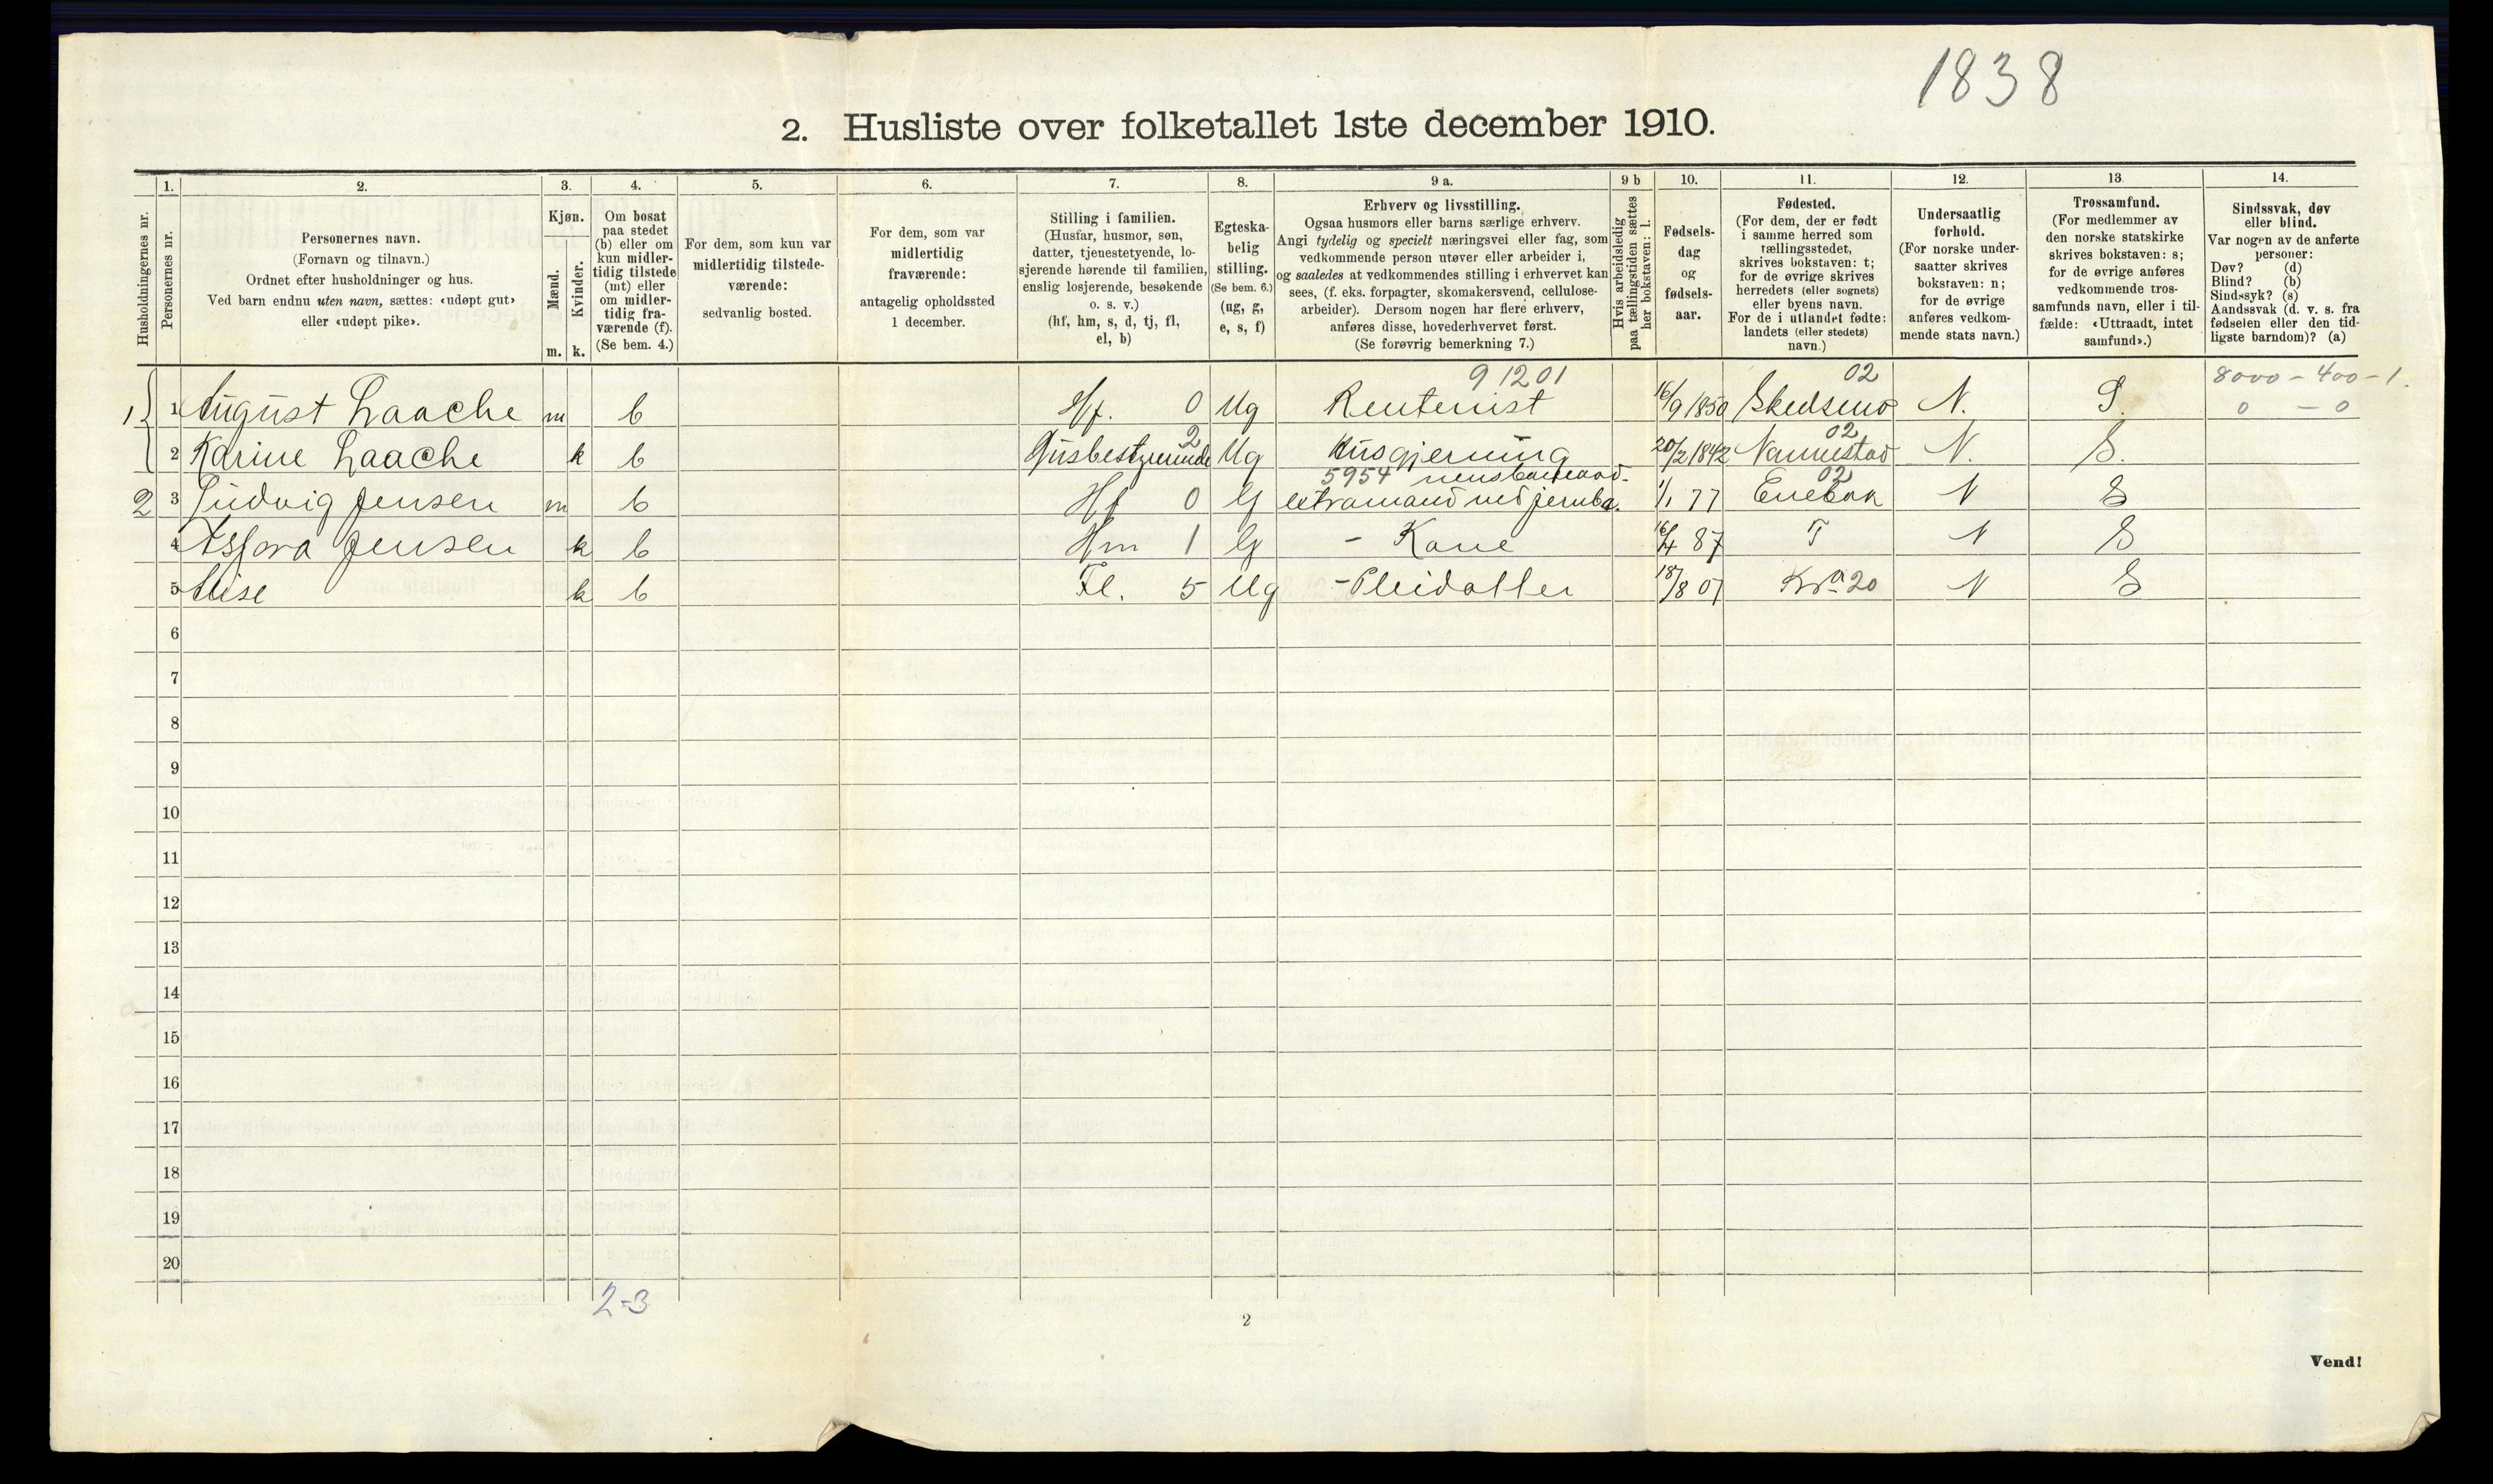 1838
2. Husliste over folketallet 1ste december 1910.
Husholdningernes nr.
1.
Personernes nr.
2.
Personernes navn.
(Fornavn og tilnavn.)
Ordnet efter husholdninger og hus.
Ved barn endnu uten navn, sættes: «udøpt gut»
eller «udøpt pike».
3.
Kjøn.
Mænd.
Kvinder.
m. k.
4.
Om bosat
paa stedet
(b) eller om
kun midler-
tidig tilstede
(mt) eller
om midler-
tidig fra-
værende (f).
(Se bem. 4.)
5.
For dem, som kun var
midlertidig tilstede-
værende:
sedvanlig bosted.
6.
For dem, som var
midlertidig
fraværende:
antagelig opholdssted
1 december.
7.
Stilling i familien.
(Husfar, husmor, søn,
datter, tjenestetyende, lo-
sjerende hørende til familien,
enslig losjerende, besøkende
o. s. v.)
(hf, hm, s, d, tj, fl,
el, b)
8.
Egteska-
belig
stilling.
(Se bem. 6.)
(ug, g,
e, s, f)
9 a.
Erhverv og livsstilling.
Ogsaa husmors eller barns særlige erhverv.
Angi tydelig og specielt næringsvei eller fag, som
vedkommende person utøver eller arbeider i,
og saaledes at vedkommendes stilling i erhvervet kan
sees, (f. eks. forpagter, skomakersvend, cellulose-
arbeider). Dersom nogen har flere erhverv,
anføres disse, hovederhvervet først.
(Se forøvrig bemerkning 7.)
9 b
Hvis arbeidsledig
paa tællingstiden sættes
her bokstaven: l.
10.
Fødsels-
dag
og
fødsels-
aar.
11.
Fødested.
(For dem, der er født
i samme herred som
tællingsstedet,
skrives bokstaven: t;
for de øvrige skrives
herredets (eller sognets)
eller byens navn.
For de i utlandet fødte:
landets (eller stedets)
navn.)
12.
Undersaatlig
forhold.
(For norske under-
saatter skrives
bokstaven: n;
for de øvrige
anføres vedkom-
mende stats navn.)
13.
Trossamfund.
(For medlemmer av
den norske statskirke
skrives bokstaven: s;
for de øvrige anføres
vedkommende tros-
samfunds navn, eller i til-
fælde: «Uttraadt, intet
samfund».)
14.
Sindssvak, døv
eller blind.
Var nogen av de anførte
personer:
Døv? (d)
Blind? (b)
Sindssyk? (s)
Aandssvak (d. v. s. fra
fødselen eller den tid-
ligste barndom)? (a)
91201 02 8000 - 400 - 1.
1 1 August Laache m b Hf. 0 Ug Rentenist 16/9 1850 Skedsmo N. S. 0 - 0
2 02
2 Karine Laache k b Husbestyrerinde Ug Husgjerning 20/2 1842 Nannestad N. S.
5954 02
2 3 Ludvig Jensen m b Hf 0 G extramand ved jernba. 1/1 77 Enebak N S
4 Asfora Jensen k b Hm 1 G - Kone 16/4 87 T N S
5 Elise k b Fl. 5 Ug - Pleidatter 18/8 07 Kra 20 N S
6
7
8
9
10
11
12
13
14
15
16
17
18
19
20
2-3
2
Vend!